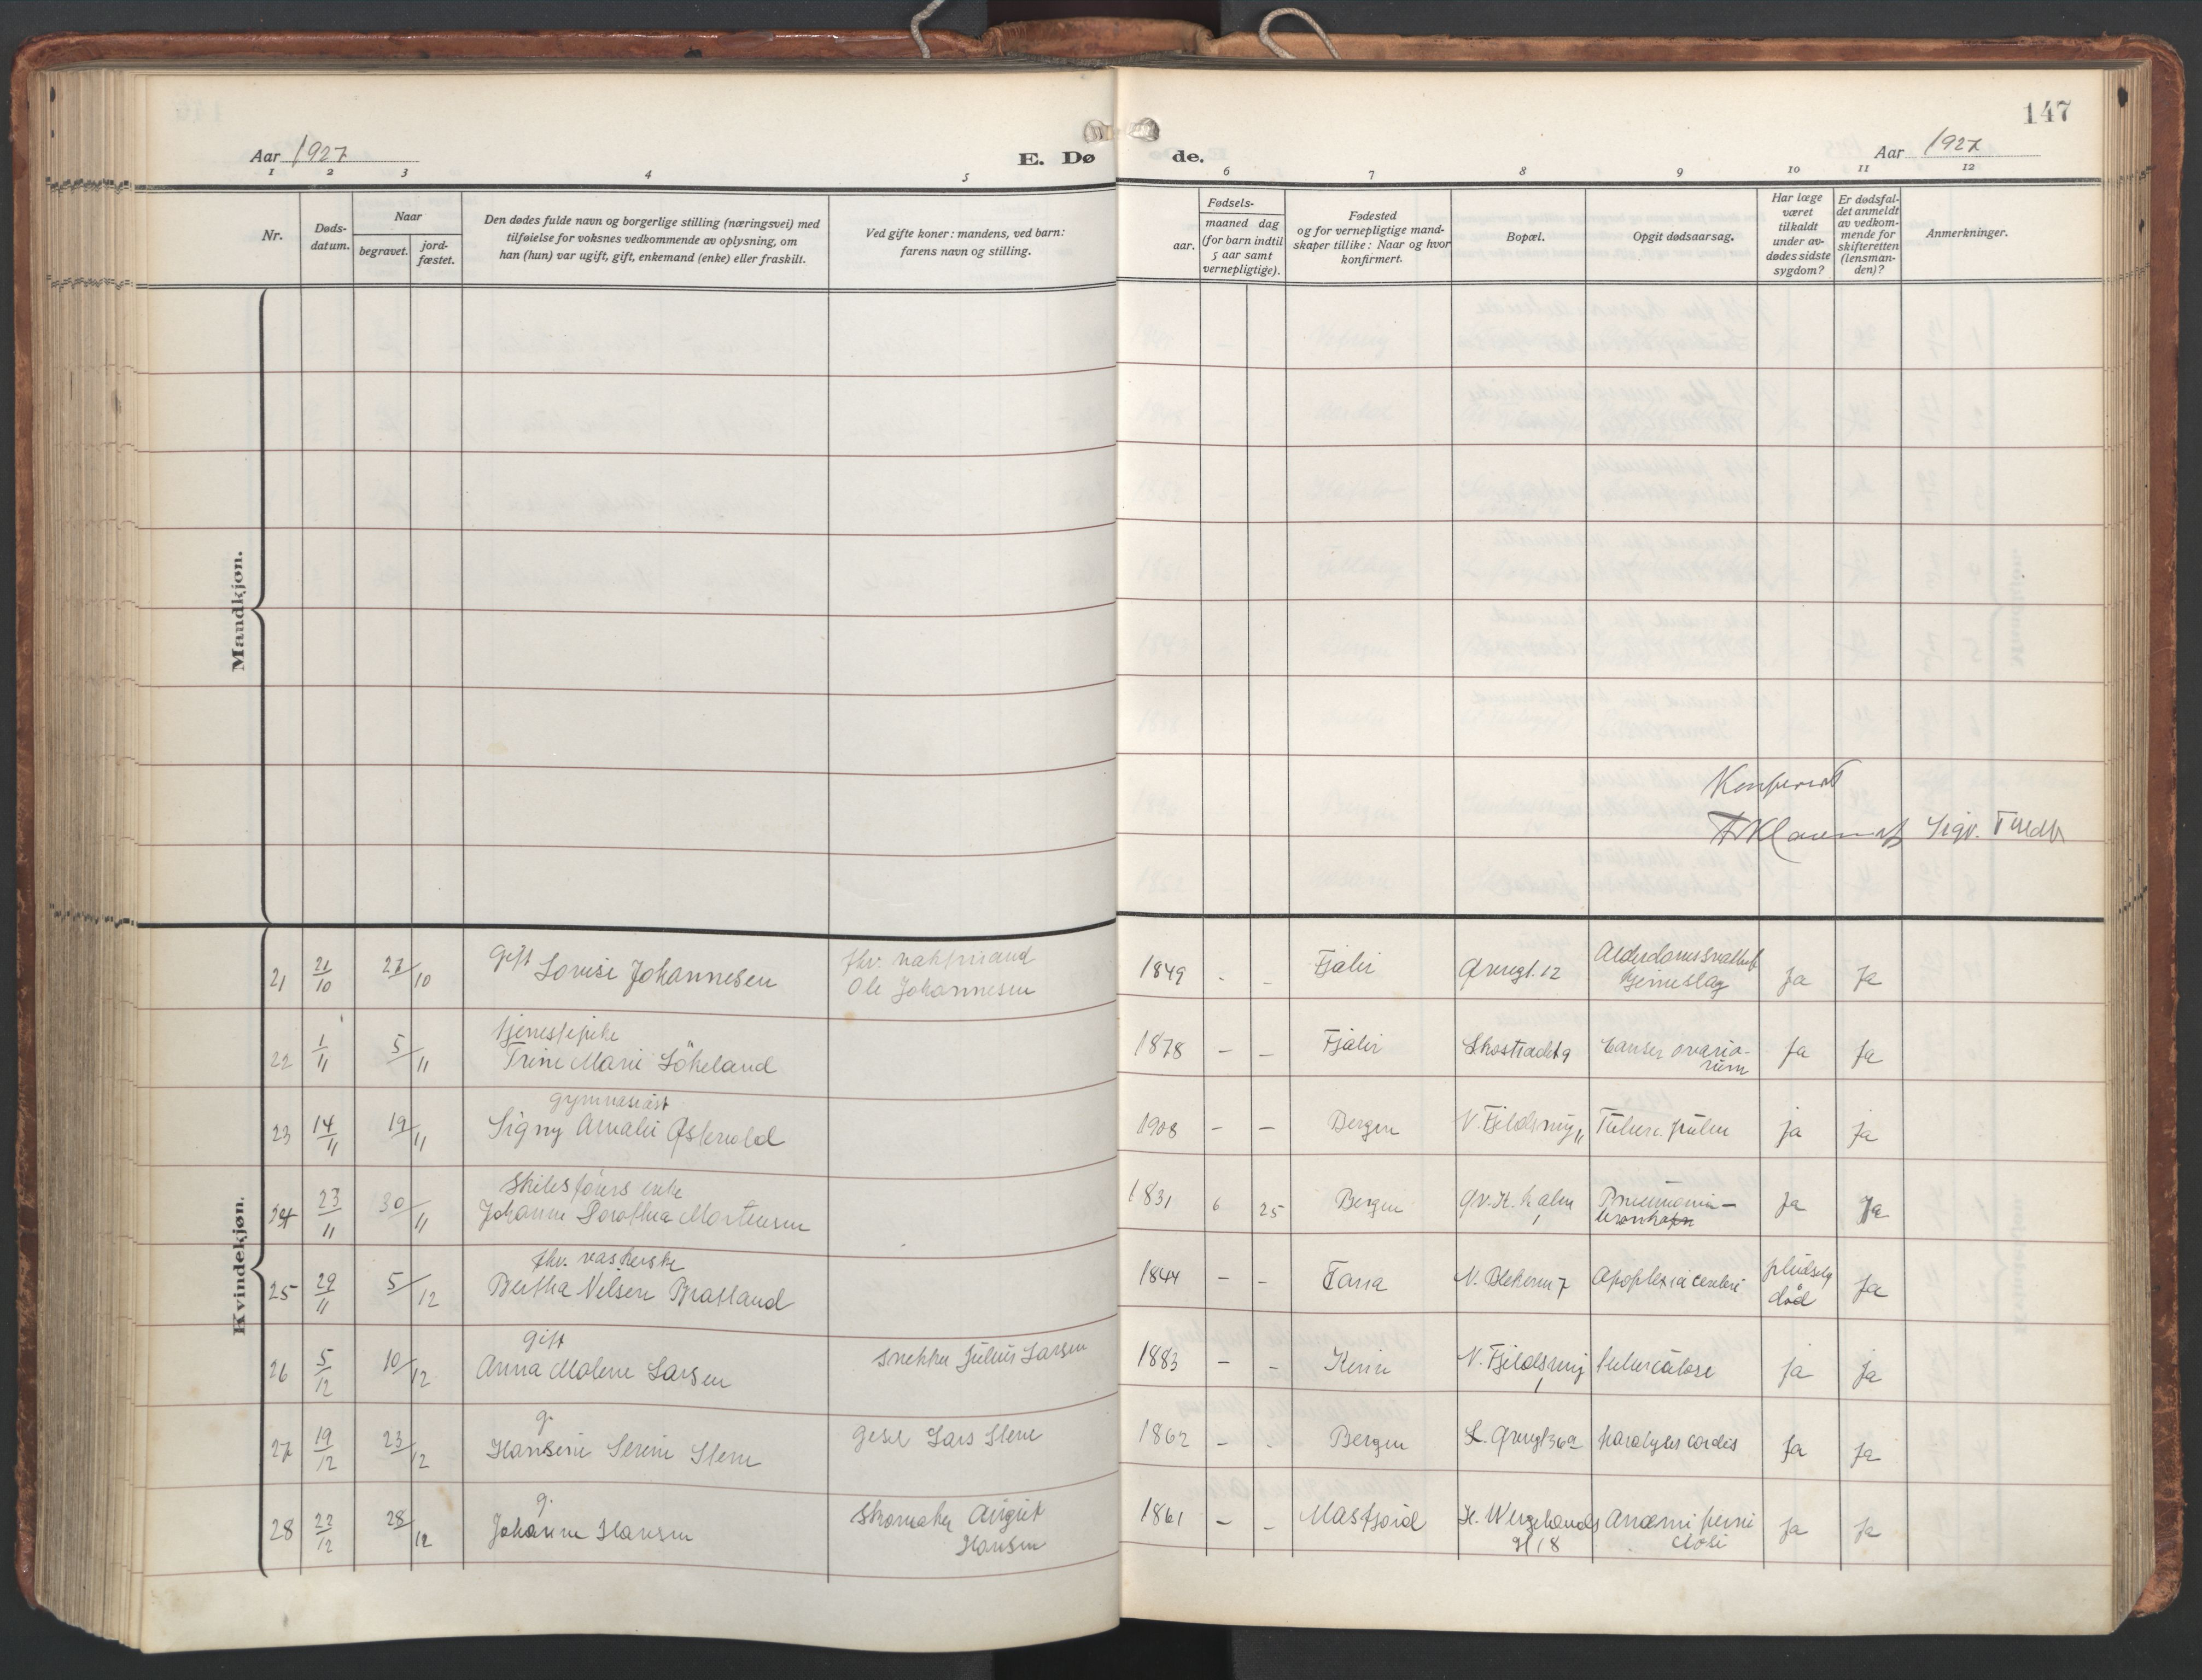 147
Aar 1927
E. Dø
de.
Aar 1927
1 2 3 4 5 6 7 8 9 10 11 12
Nr.
Døds-
datum.
Naar
begravet.
jord-
fæstet.
Den dødes fulde navn og borgerlige stilling (næringsvei) med
tilføielse for voksnes vedkommende av oplysning, om
han (hun) var ugift, gift, enkemand (enke) eller fraskilt.
Ved gifte koner: mandens, ved barn:
farens navn og stilling.
Fødsels-
aar.
maaned dag
(for barn indtil
5 aar samt
vernepligtige).
Fødested
og for vernepligtige mand-
skaper tillike: Naar og hvor
konfirmert.
Bopæl.
Opgit dødsaarsag.
Har læge
været
tilkaldt
under av-
dødes sidste
sygdom?
Er dødsfal-
det anmeldt
av vedkom-
mende for
skifteretten
(lensman-
den)?
Anmerkninger.
Mandkjøn.
Konferert
Sigv.
Kvindekjøn.
21 21/10 27/10 Gift Lovise Johannesen fhv.
Ole Johannesen 1849 - - Fjaler Øvregt. 12 Alderdomssvakhet
hjerneslag Ja Ja
22 1/11 5/11 tjenestepike
Trine Marie Lökeland 1878 - - Fjaler Skostrædet 9 Cancer ovario-
rum Ja Ja
23 14/11 19/11 gymnasiast
Signy Amalie Østervold 1908 - - Bergen N. Fjeldsmug 11 Tuberc. pulm ja ja
24 23/11 30/11 Skibsførers enke
Johanne Dorothea Mortensen 1831 6 25 Bergen Øv. K. halm
1 Pneumonia - Ja Ja
25 29/11 5/12 fhv. vaskerske
Bertha Nilsen Bratland 1844 - - N. Blekevn 7 Apoplexia cerebri pludselig
død Ja
26 5/12 10/12 gift
Anna Malene Larsen snekker Julius Larsen 1883 - - Kvin N. Fjeldsmug
1 tuberculose ja ja
27 19/12 23/12 g.
Hansine Serine Stene Lars Stene 1862 - - Bergen L. Øvregt 36a paralysis cordis Ja Ja
28 22/12 28/12 g.
Johanne Hansen Skomaker August
Hansen 1861 - - Masfjord H. Wergelands
gt 18 Anæmi perni
ciosi Ja Ja